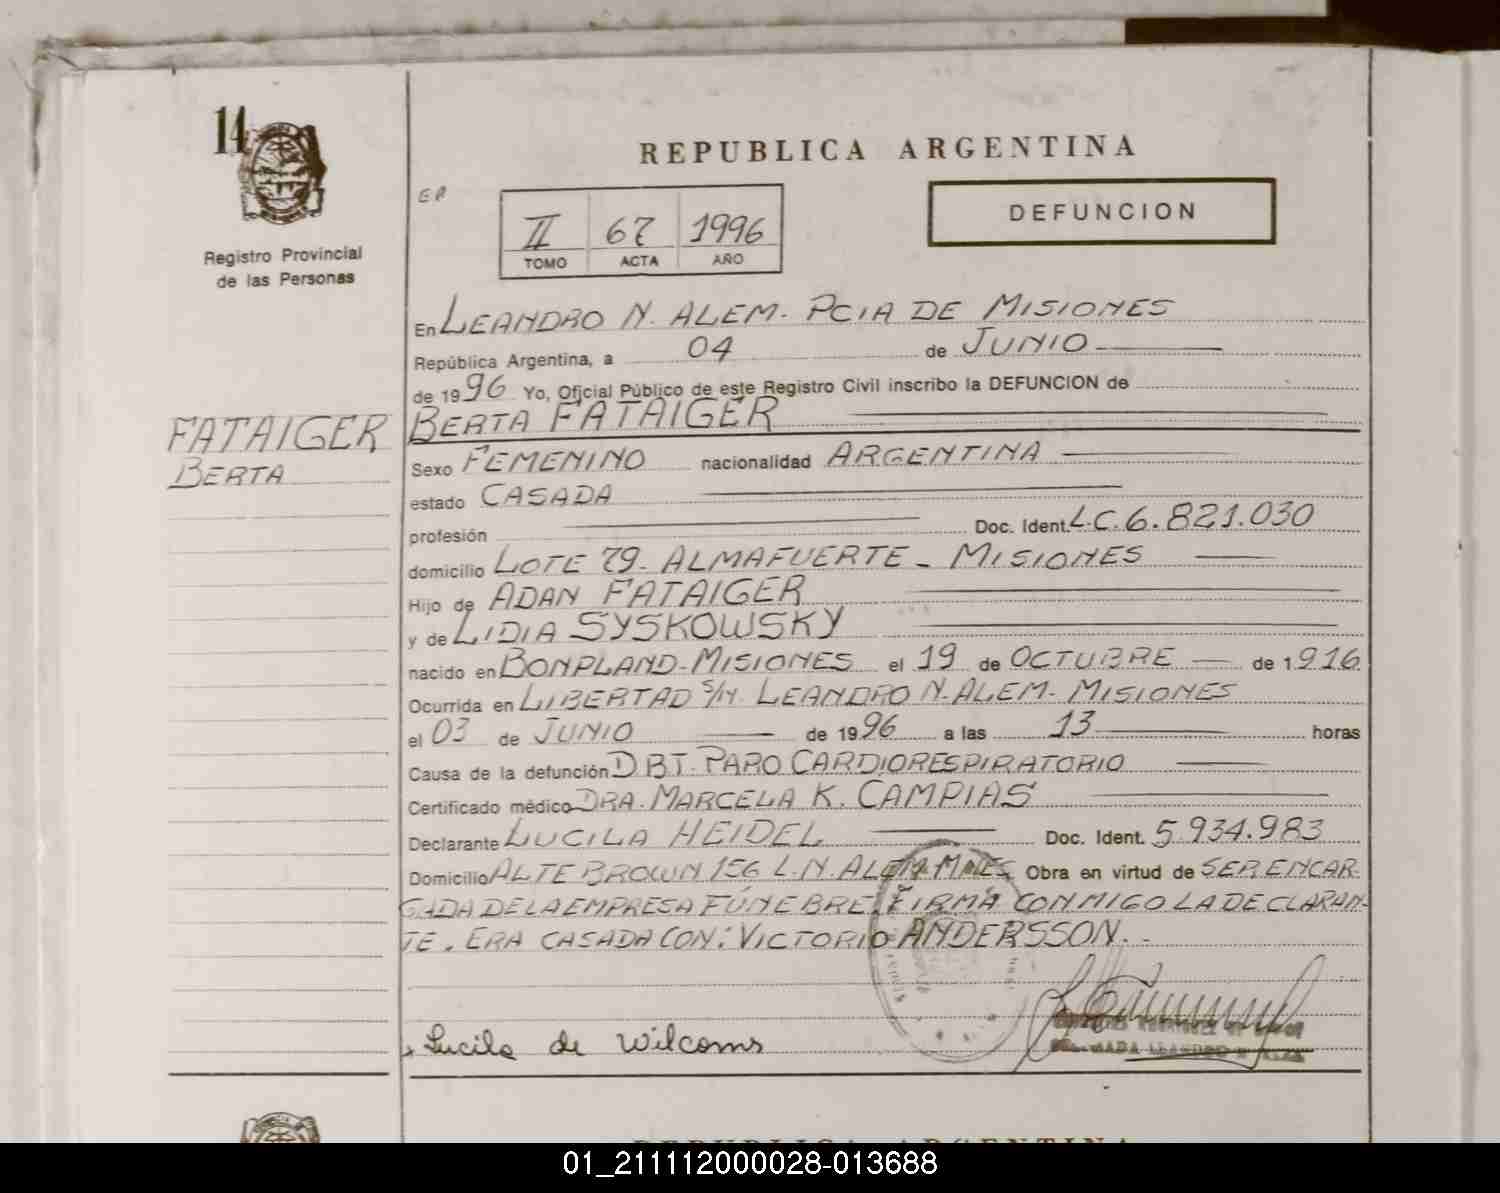 14
REPUBLICA ARGENTINA
DEFUNCION
II 67 1996
TOMO ACTA AÑO
Registro Provincial
de las Personas
En LEANDRO N. ALEM. PCIA DE MISIONES
República Argentina, a 04 de JUNIO
de 1996 Yo, Oficial Público de este Registro Civil inscribo la DEFUNCION de
FATAIGER
BERTA
BERTA FATAIGER
Sexo FEMENINO nacionalidad ARGENTINA
estado CASADA
profesión Doc. Ident. L.C. 6.821.030
domicilio LOTE 79. ALMAFUERTE - MISIONES
Hijo de ADAN FATAIGER
y de LIDIA SYSKOWSKY
nacido en BONPLAND-MISIONES el 19 de OCTUBRE de 1.916
Ocurrida en LIBERTAD S/N. LEANDRO N. ALEM. MISIONES
el 03 de JUNIO de 1996 a las 13 horas
Causa de la defunción DBT. PARO CARDIORESPIRATORIO
Certificado médico DRA. MARCELA K. CAMPIAS
Declarante LUCILA HEIDEL Doc. Ident. 5.934.983
Domicilio ALTE BROWN 156 L.N. ALEM MNES Obra en virtud de SER ENCAR-
GADA DE LA EMPRESA FÚNEBRE. FIRMA CONMIGO LA DECLARAN-
TE. ERA CASADA CON: VICTORIO ANDERSSON.
Lucila de Wilcoms
REPUBLICA ARGENTINA
01_211112000028-013688